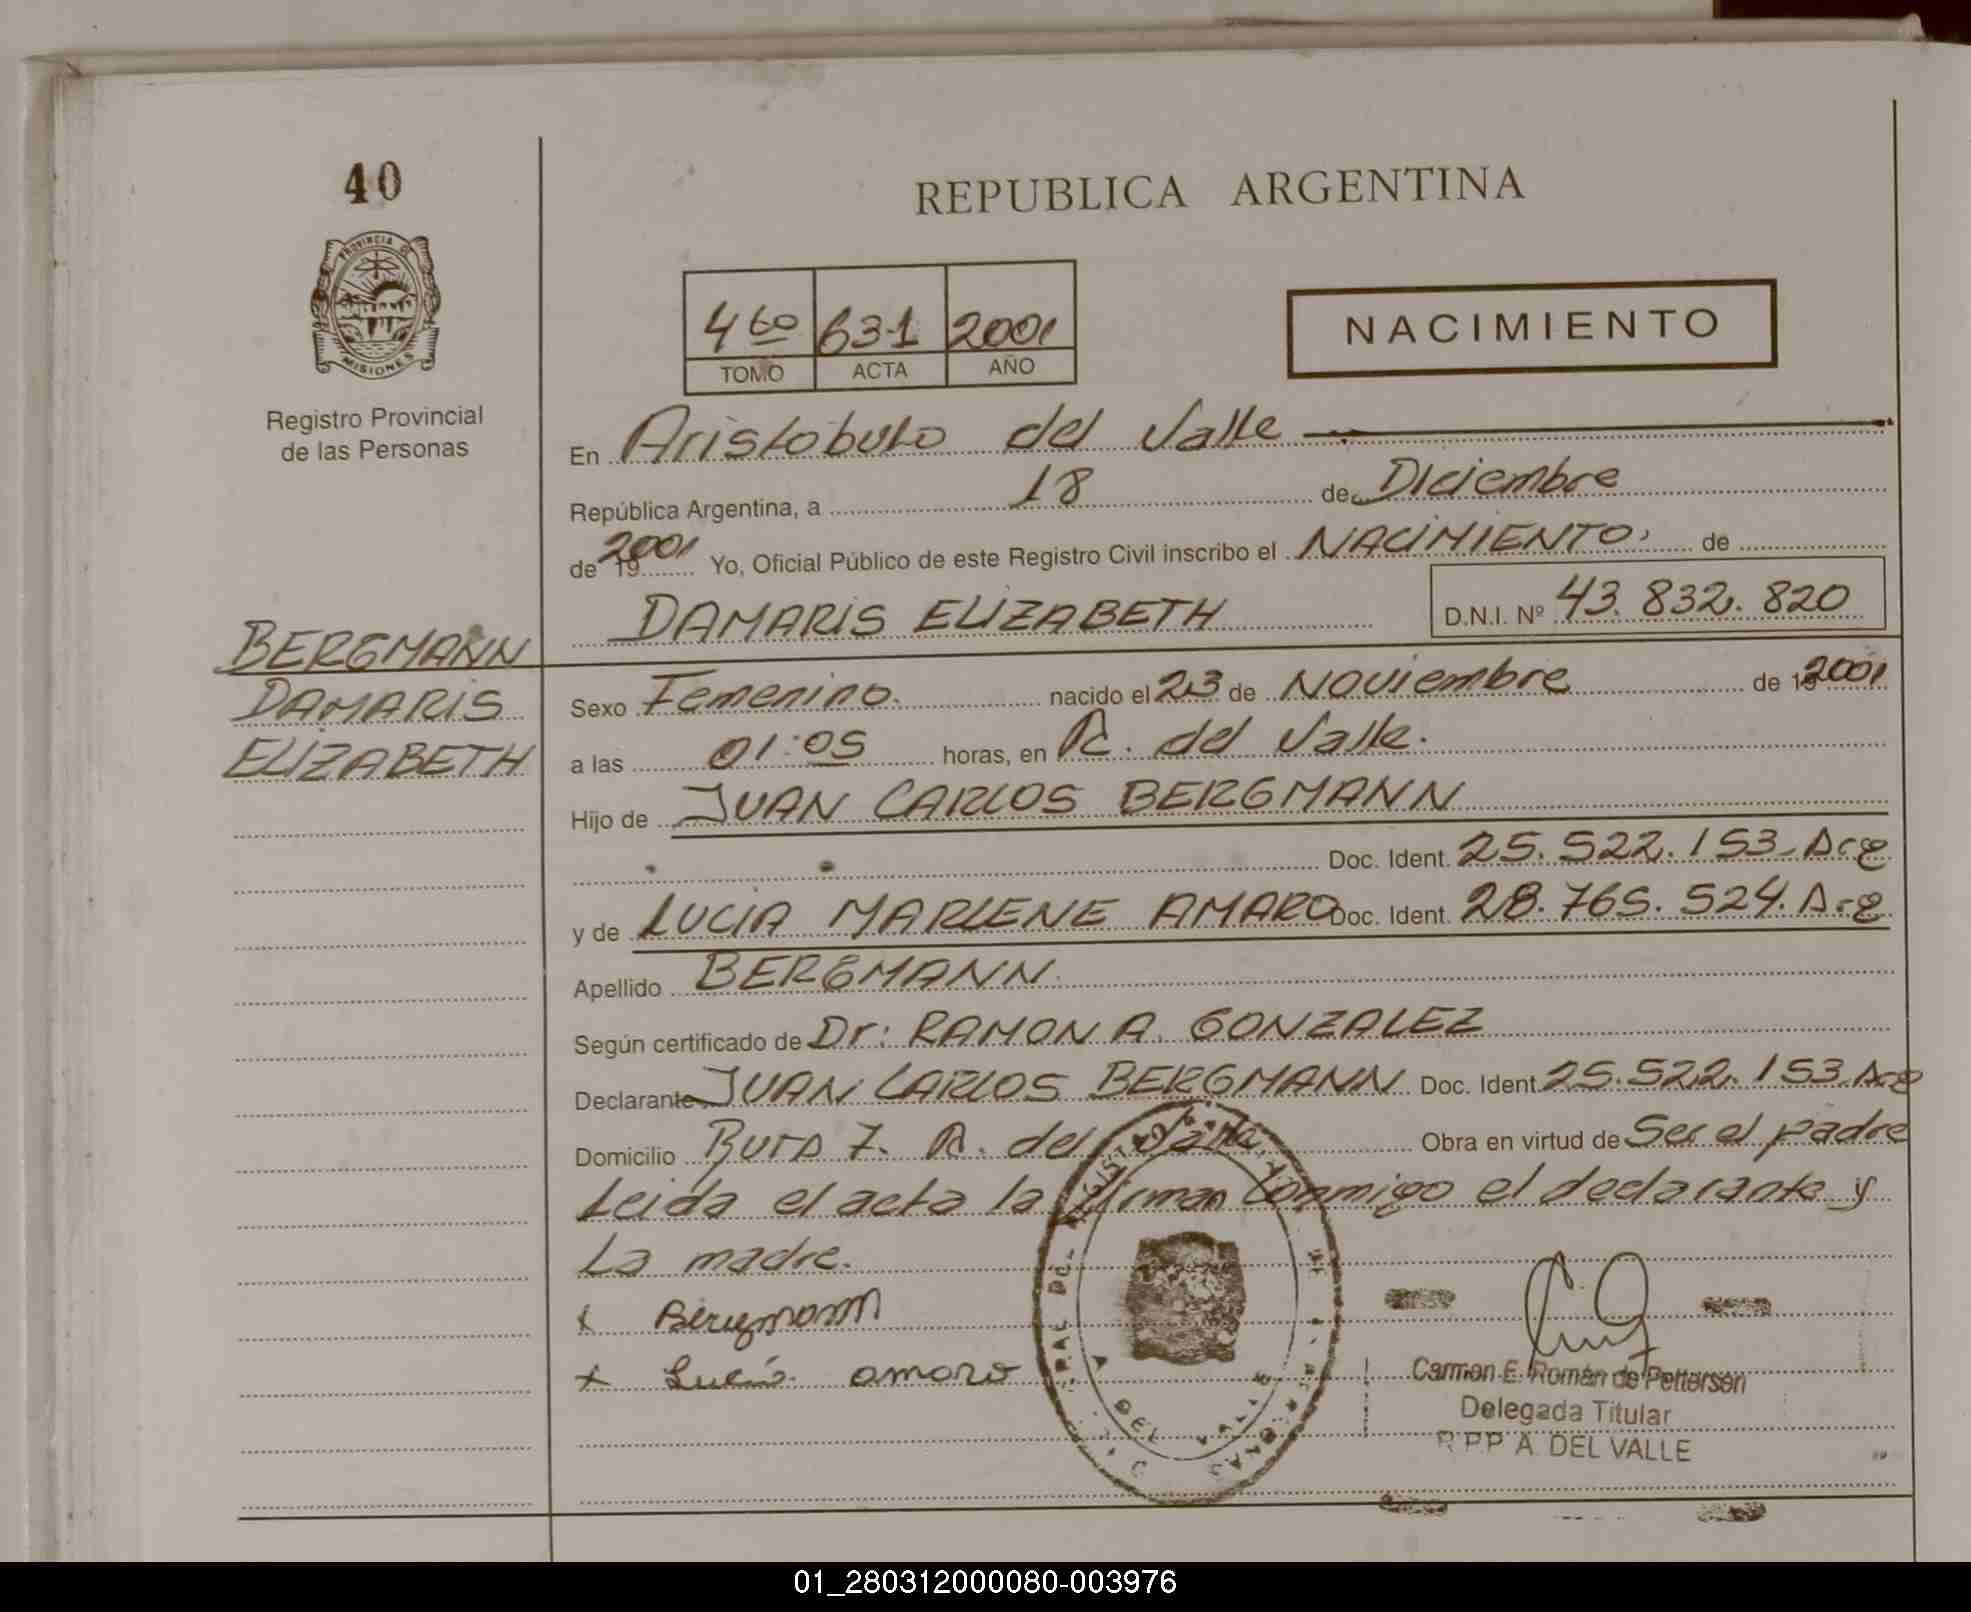 40
PROVINCIA DE
MISIONES
Registro Provincial
de las Personas
REPUBLICA ARGENTINA
4to 631 2001
TOMO ACTA AÑO
NACIMIENTO
En Aristobulo del Valle
República Argentina, a 18 de Diciembre
de 19 2001 Yo, Oficial Público de este Registro Civil inscribo el NACIMIENTO, de
DAMARIS ELIZABETH D.N.I. Nº 43.832.820
BERGMANN
DAMARIS
ELIZABETH
Sexo Femenino. nacido el 23 de Noviembre de 19 2001
a las 01:05 horas, en A. del Valle.
Hijo de JUAN CARLOS BERGMANN
Doc. Ident. 25.522.153 Arg
y de LUCIA MARLENE AMARO Doc. Ident. 28.765.524. Arg
Apellido BERGMANN
Según certificado de Dr: RAMON A. GONZALEZ
Declarante JUAN CARLOS BERGMANN Doc. Ident. 25.522.153 Arg
Domicilio Ruta 7. A. del Valle Obra en virtud de Ser el padre
Leida el acta la firman conmigo el declarante y
La madre.
x Bergmann
x Lucía amaro
Carmen E. Román de Pettersen
Delegada Titular
R.P.P A. DEL VALLE
01_280312000080-003976